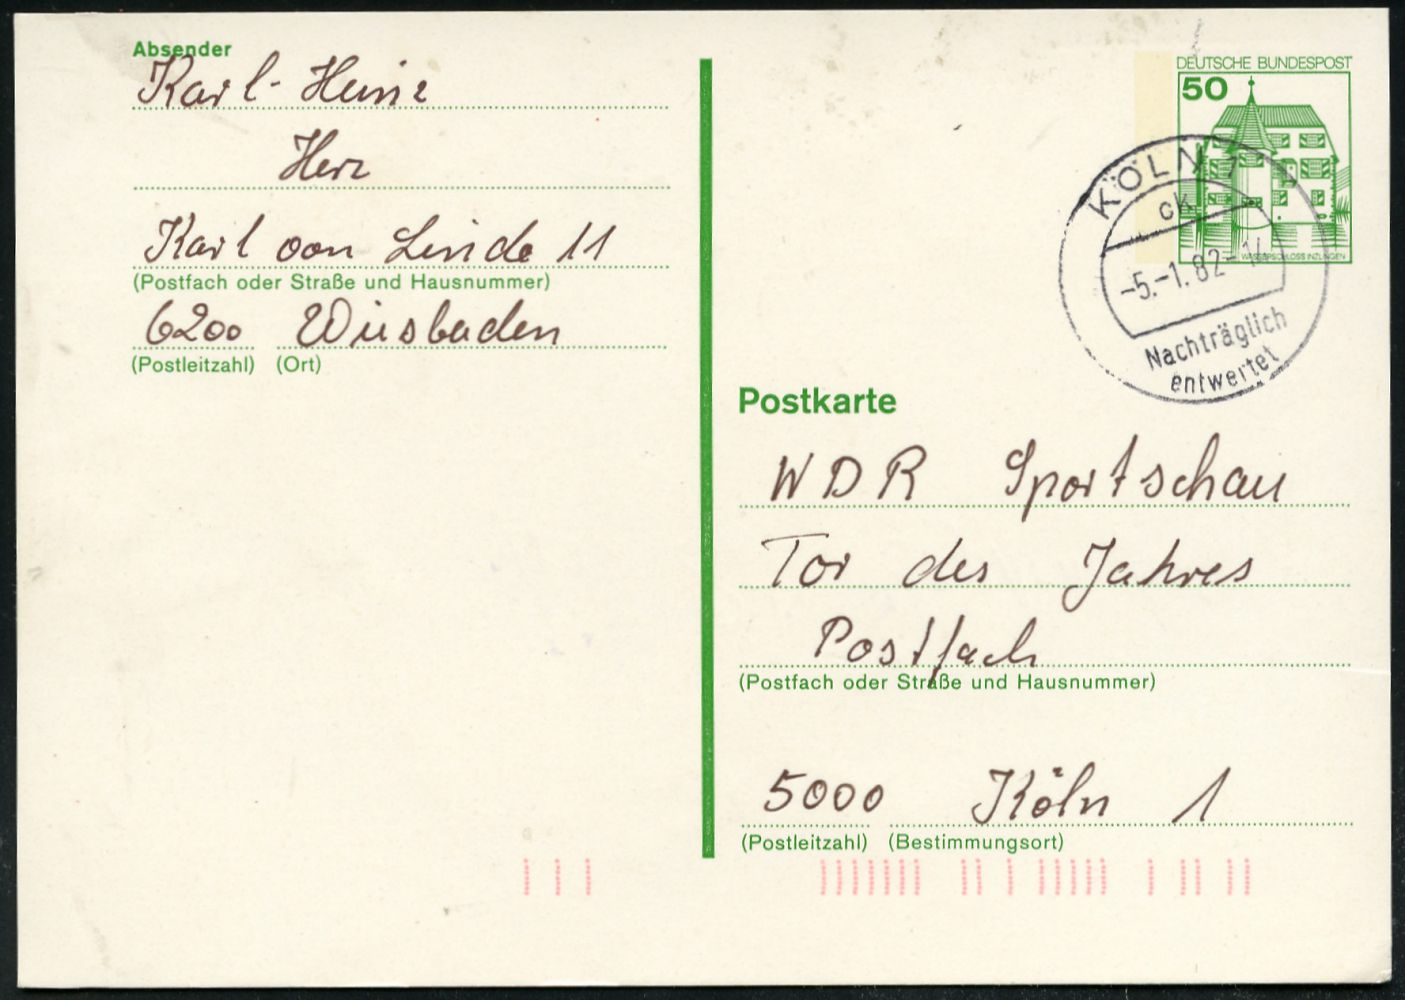 Absender
Karl-Heinz
Herz
Karl von Linde 11
(Postfach oder Straße und Hausnummer)
6200 Wiesbaden
(Postleitzahl) (Ort)
DEUTSCHE BUNDESPOST
50
WASSERSCHLOSS INZLINGEN
KÖLN 1
cK
-5.-1.82-14
Nachträglich
entwertet
Postkarte
WDR Sportschau
Tor des Jahres
Postfach
(Postfach oder Straße und Hausnummer)
5000 Köln 1
(Postleitzahl) (Bestimmungsort)